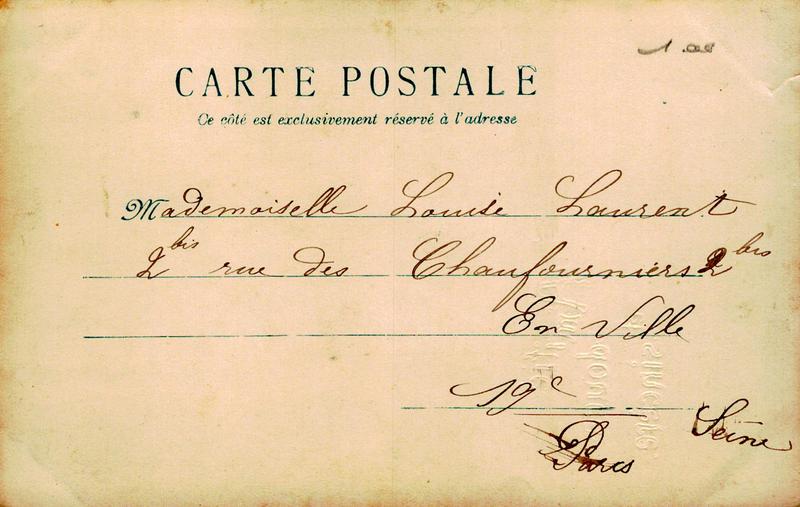 1.00
CARTE POSTALE
Ce côté est exclusivement réservé à l'adresse
Mademoiselle Louise Laurent
2 bis rue des Chaufourniers 2 bis
En Ville
19e
Seine
Paris